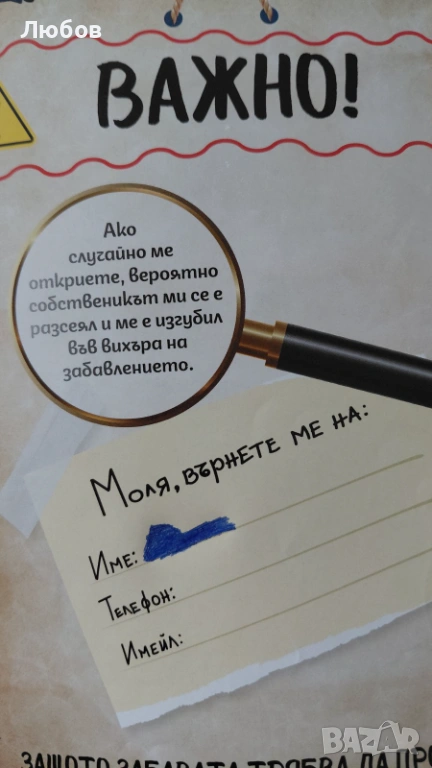 Любов
ВАЖНО!
Ако
случайно ме
откриете, вероятно
собственикът ми се е
разсеял и ме е изгубил
във вихъра на
забавлението.
Моля, върнете ме на:
Име:
Телефон:
Имейл:
ЗАЩОТО ЗАБАВАТА ТРЯБВА ДА ПРО
BAZAR